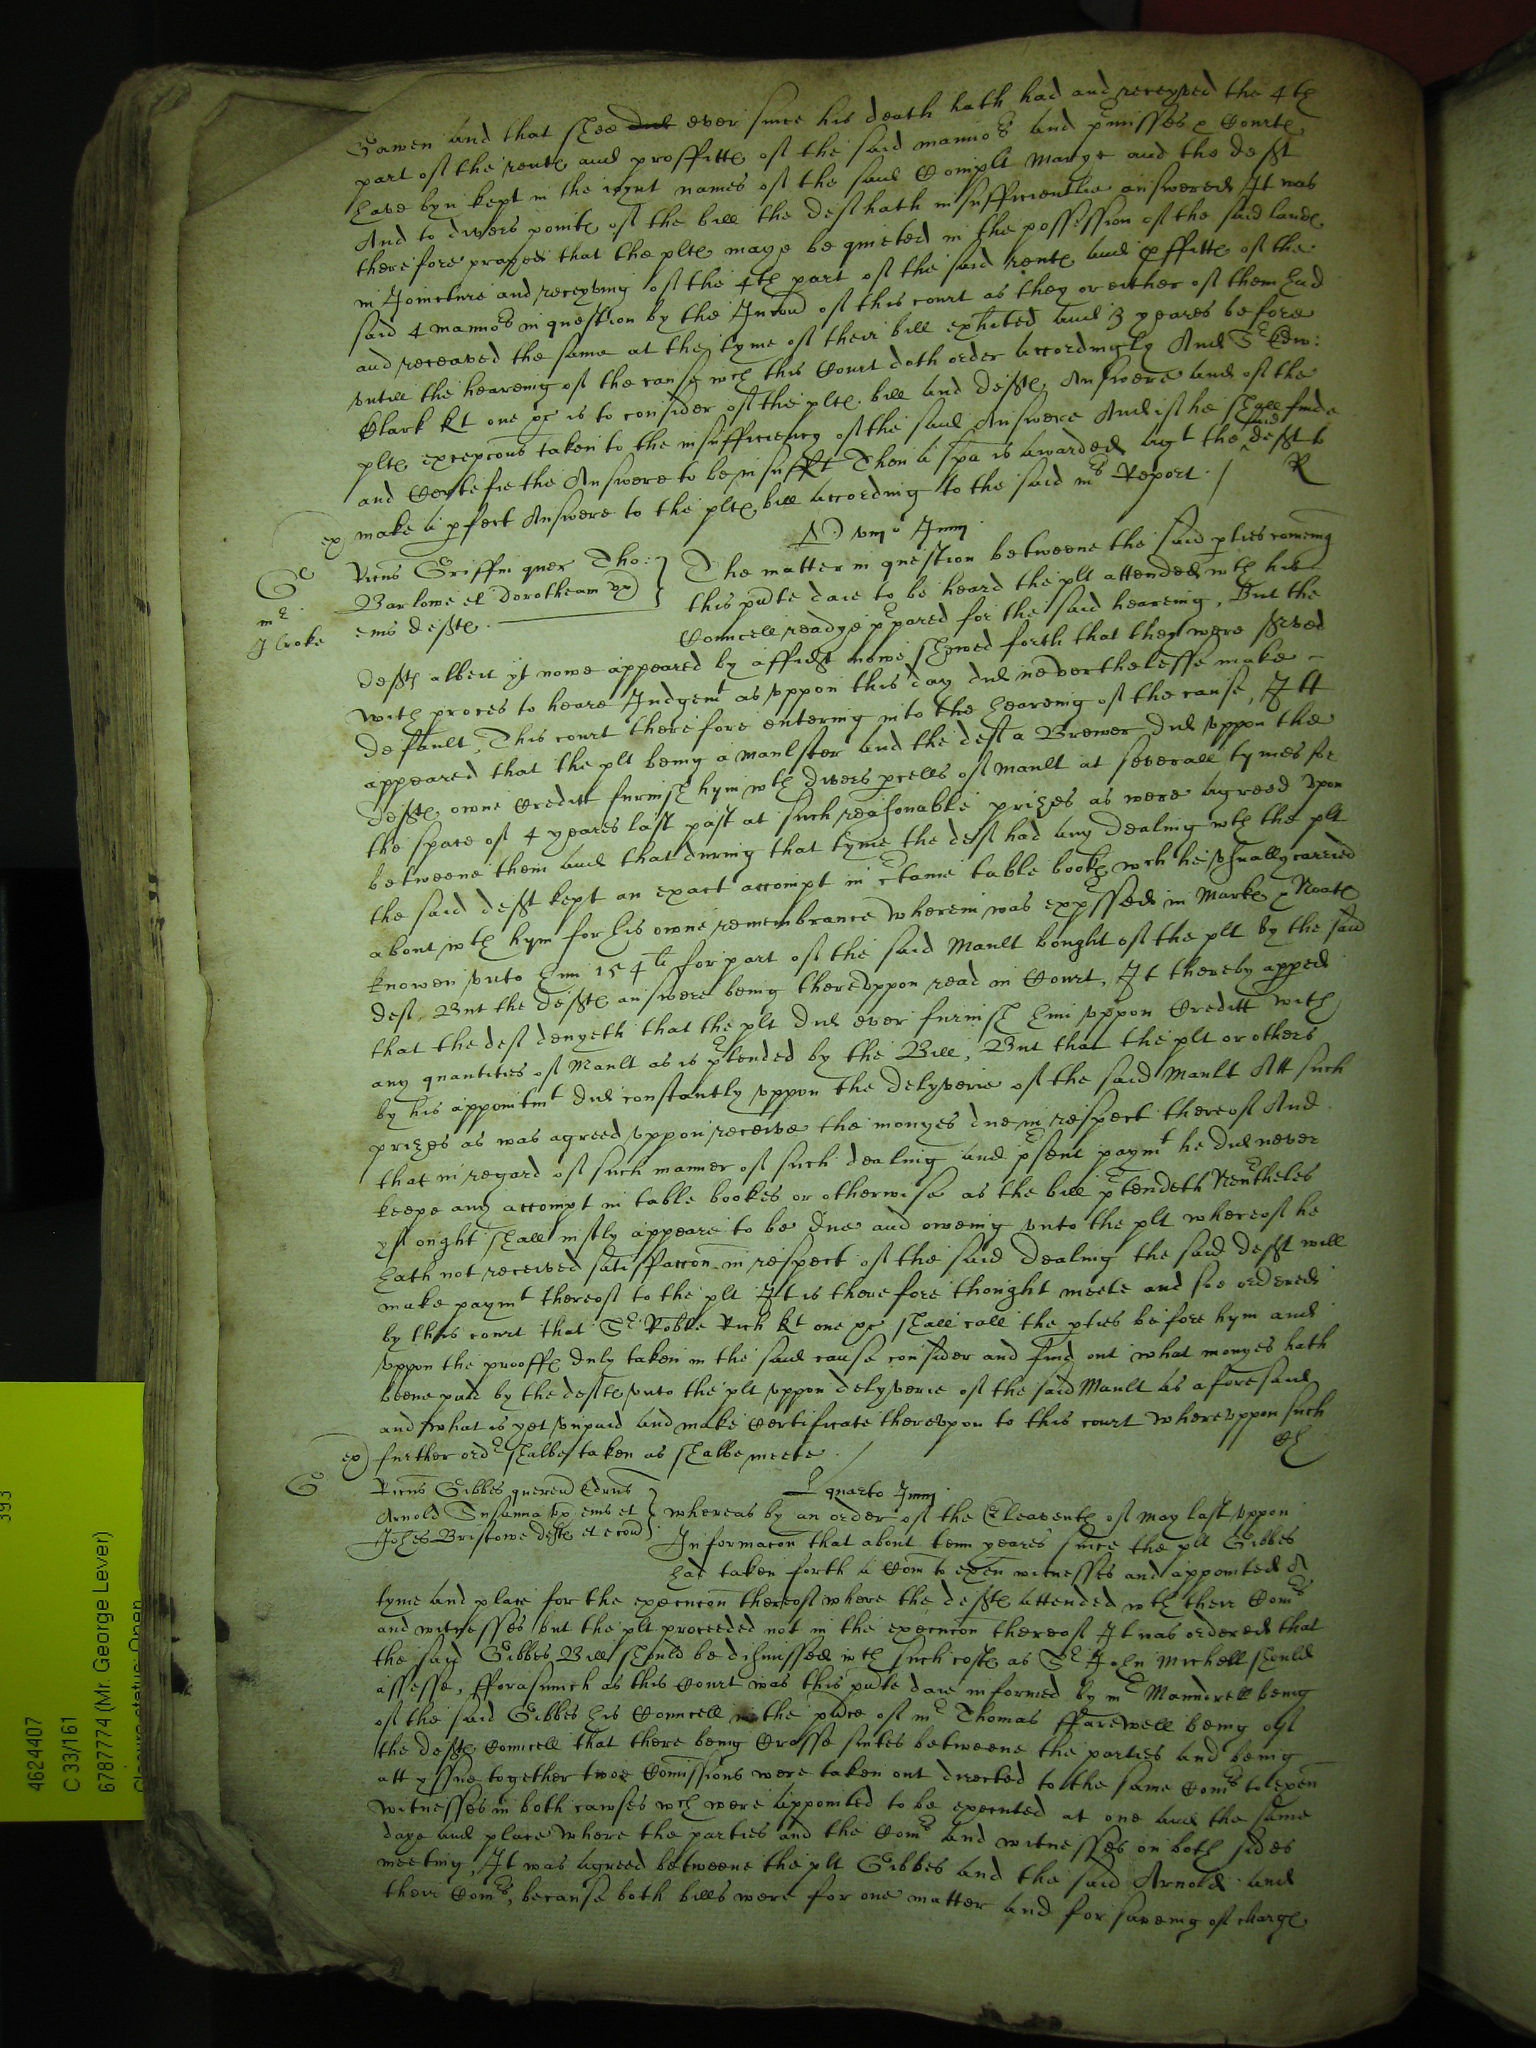 Gawen and that shee did ever since his death hath had and receyved the 4th
part of the rente and proffitte of the said mannors and pmisses & Courte
have byn kept in the ioynt names of the said Complt Marye and the deft
And to divers pointe of the bill the def hath insufficientlie answered It was
therefore prayed that the plte maye be quieted in the possession of the said lande
in Joincture and receyving of the 4th part of the said rente and pffitte of the
said 4 mannors in question by the Jnton of this court as they or either of them had
and receaved the same at the tyme of their bill exhited and 3 yeares before
untill the hearenig of the cause wch this Court doth order accordingly And Sr Edw:
Clark Kt one &c is to consider of the plte bill and defte Answere and of the
plte excepcons taken to the insufficiency of the said Answere And if he shall finde
and Certefie the Answere to be insufft Then a spa is awarded agt the said deft to
make a pfect Answere to the plte bill according to the said mrs Report / R
ex
D vii° Junij
Ge
mr
J Croke
Ricus Griffin quer Tho:
Barlowe et Dorotheam ux
eius defte
The matter in question betweene the said pties cominig
this pnte daie to be heard the plt attended wth his
Councell readye ppared for the said heareing, But the
defte albeit yt nowe appeared by affidt nowe shewed forth that they were served
with proces to heare Judgemt as uppon this day did neverthelesse make
default, This court therefore entering into the heareinig of the cause, Itt
appeared that the plt being a maulster and the deft a Brewer did uppon the
defte owne Creditt furnish hym wth divers pcells of mault at severall tymes for
the space of 4 yeares last past at such reasonable prizes as were agreed upon
betweene them and that during that tyme the def had any dealing wth the plt
the said deft kept an exact accompt in ctaine table booke wch he usually carried
about wth hym for his owne remembrance wherein was expssed in Marke & Noate
knowen unto him 154li for part of the said Mault bought of the plt by the said
def, But the defte answere being thereuppon read in Court, It thereby apped
that the def denyeth that the plt did ever furnish him uppon Creditt with
any quantities of Mault as is ptended by the Bill, But that the plt or others
by his appointmt did constantly uppon the delyverie of the said Mault Att such
prizes as was agreed uppon receive the monyes due in respect thereof And
that in regard of such manner of such dealing and psent paymt he did never
keepe any accompt in table bookes or otherwise as the bill ptendeth Neutheles
yf ought shall iustly appeare to be due and oweing unto the plt whereof he
hath not received satisfaccon in respect of the said dealing the said deft will
make paymt thereof to the plt It is therefore thought meete and soe ordered
by this court that Sr Robte Rich Kt one &c shall call the pties before hym and
uppon the prooffe duly taken in the said cause consider and find out what monyes hath
beene paid by the defte unto the plt uppon delyverie of the said Mault as aforesaid
and what is yet unpaid and make Certificate thereupon to this court whereuppon such
ex further ordr shalbe taken as shalbe meete / Ch
quarto Junij
G
Ricus Gibbes querend Edrus
Arnold Susanna ux eius et
Johes Bristowe defte et e cont
Whereas by an order of the Eleaventh of May last uppon
Informacon that about tenn yeares since the plt Gibbes
had taken forth a Com to exen witnesses and appointed a
tyme and place for the execucon thereof where the defte attended wth their Comrs
and witnesses but the plt proceeded not in the execucon thereof It was ordered that
the said Gibbes Bill should be dismissed with such coste as Sr John Michell should
assesse, Fforasmuch as this Court was this pnte daie informed by mr Maundrell being
of the said Gibbes his Councell in the pnce of mr Thomas Ffarewell being of
the defte Councell that there being Crosse suites betweene the parties and being
att yssue together twoe Comissions were taken out directed to the same Comrs to exen
witnesses in both cawses wch were appointed to be executed at one and the same
daye and place Where the parties and the Comrs and witnesses on both sides
meeting, It was agreed betweene the plt Gibbes and the said Arnold and
their Comrs, because both bills were for one matter and for saveing of charge
393
4624407
C 33/161
6787774 (Mr. George Lever)
Closure status: Open